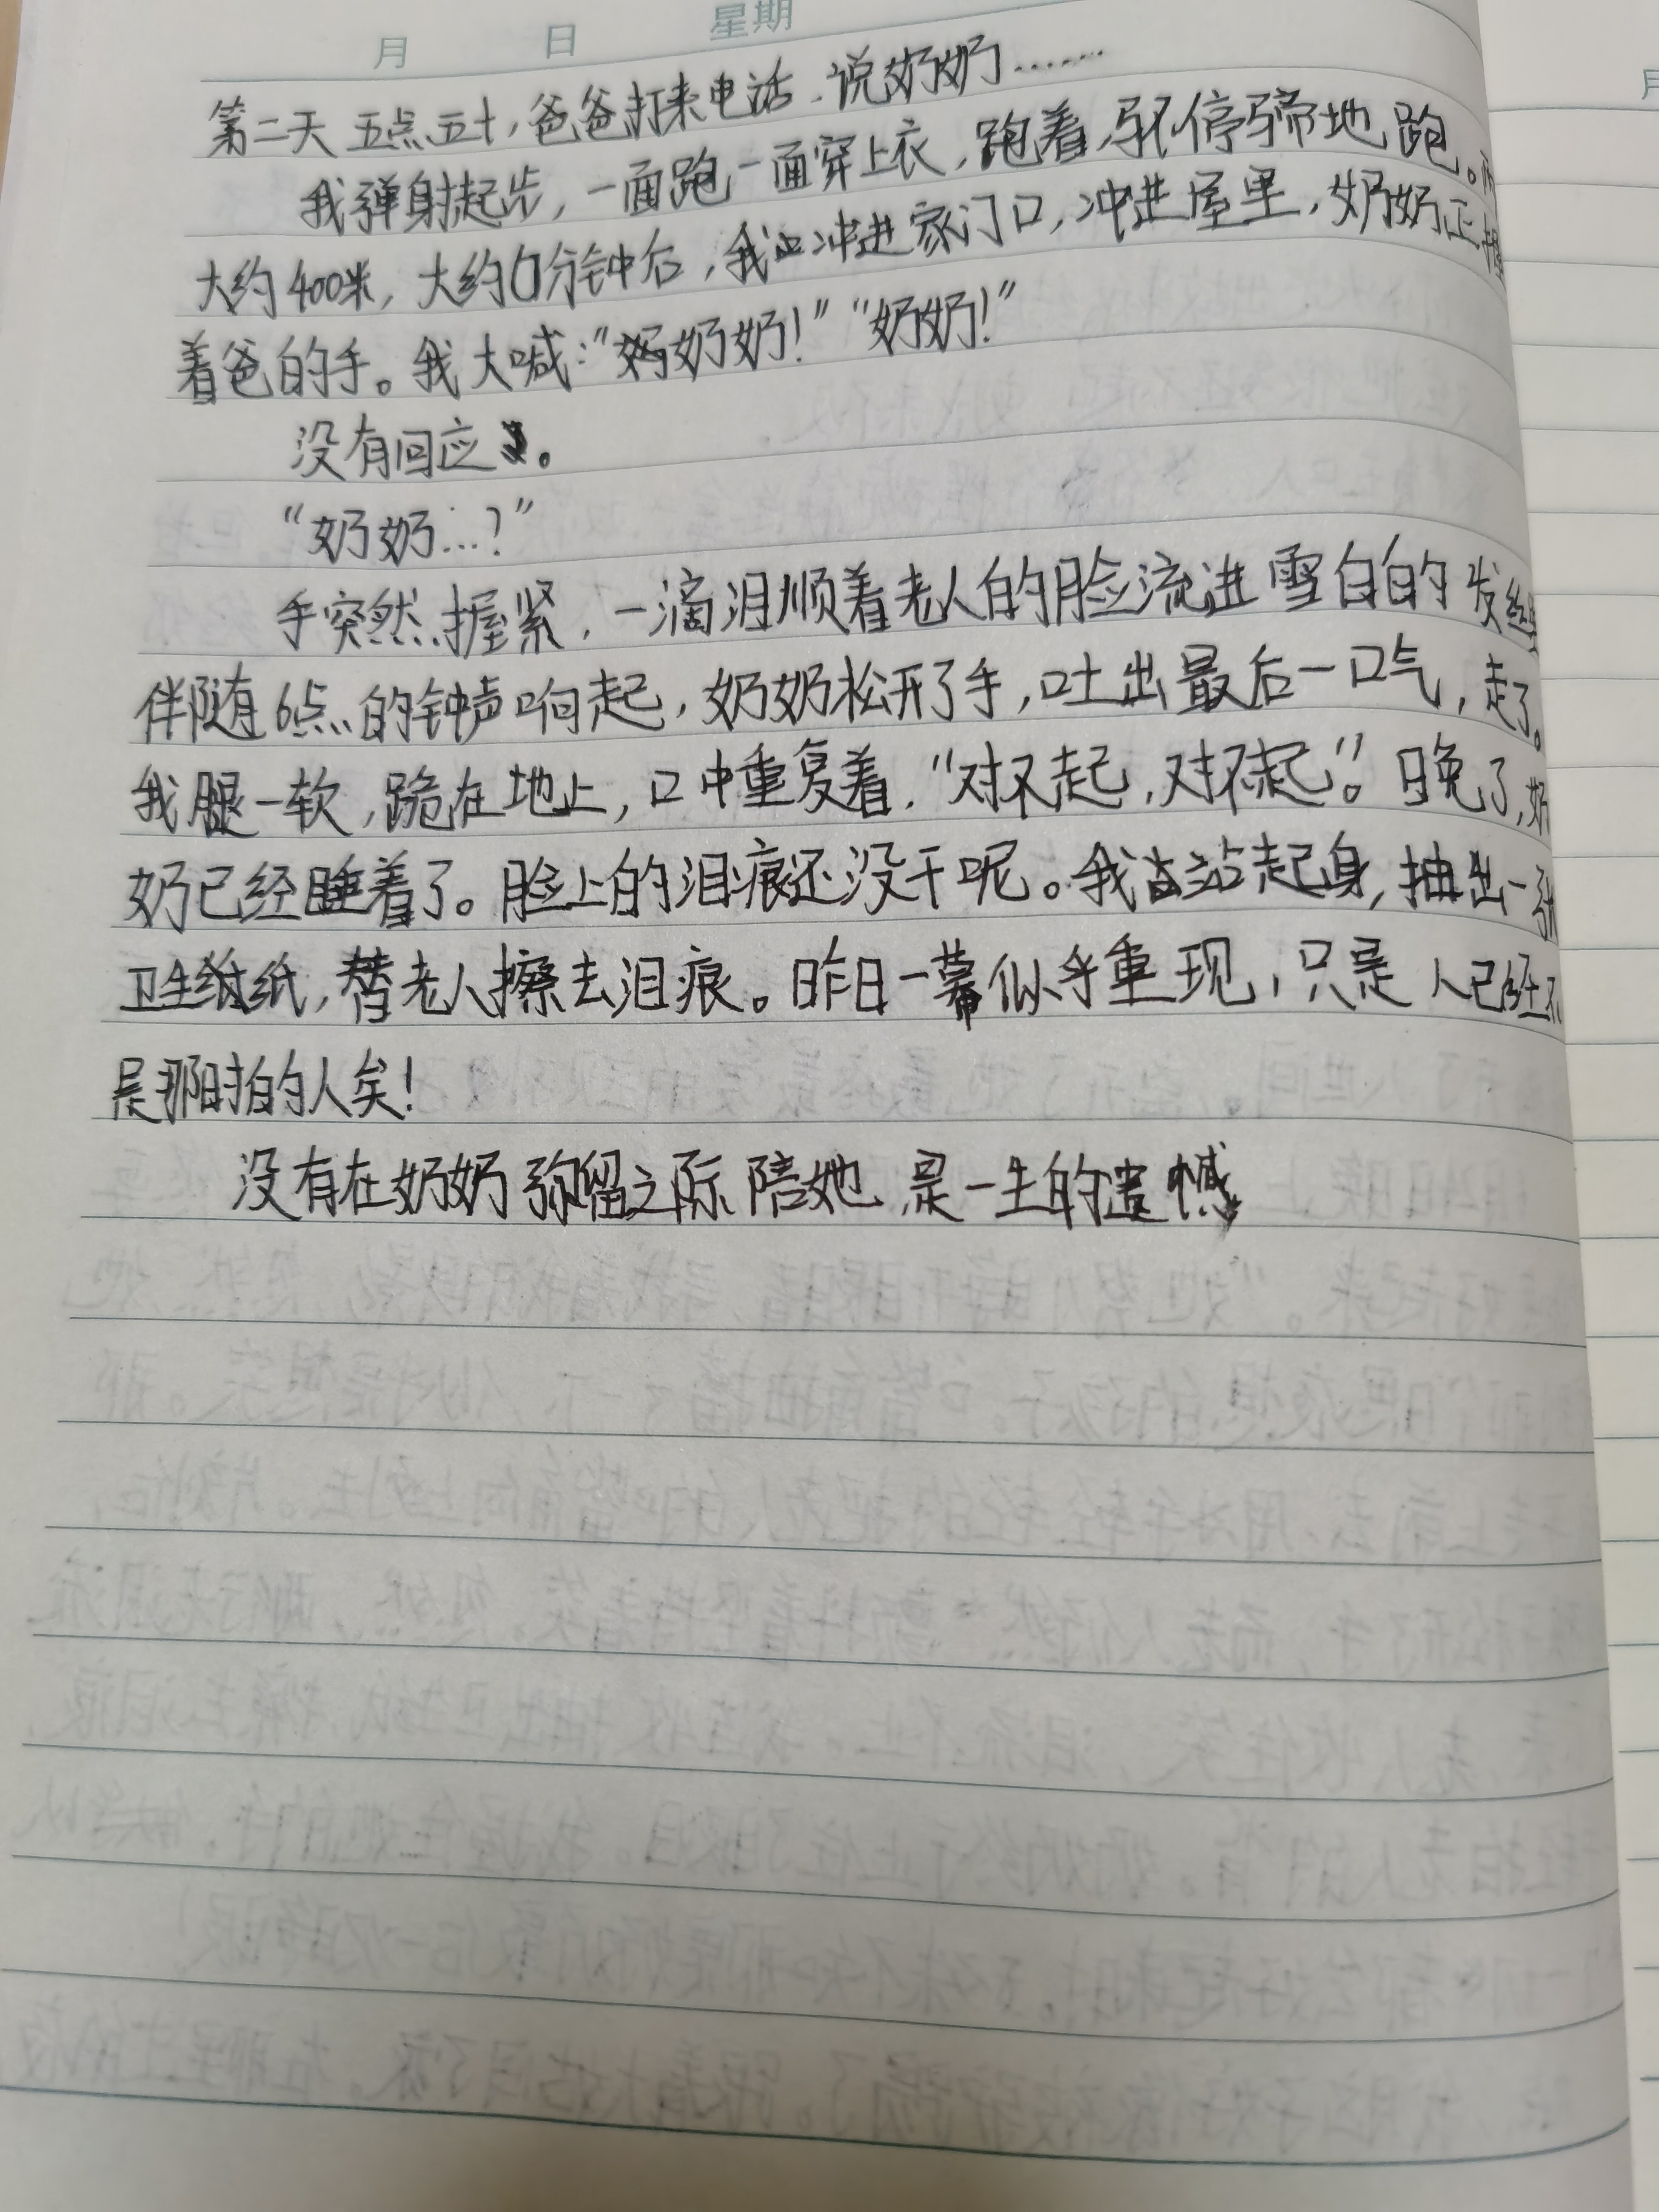 月 日 星期
第二天五点五十,爸爸打来电话,说奶奶……
我弹射起步,一面跑一面穿上衣,跑着,不停蹄地跑。
大约400米,大约分钟后,我冲进家门口,冲进屋里,奶奶正握
着爸的手。我大喊:“奶奶!”“奶奶!”
没有回应。
“奶奶…?”
手突然握紧,一滴泪顺着老人的脸流进雪白的发丝里
伴随6点的钟声响起,奶奶松开了手,吐出最后一口气,走了。
我腿一软,跪在地上,口中重复着,“对不起,对不起”。晚了,奶
奶已经睡着了。脸上的泪痕还没干呢。我站起身,抽出一张
卫生纸,替老人擦去泪痕。昨日一幕似乎重现,只是人已经不
是那时的人矣!
没有在奶奶弥留之际陪她,是一生的遗憾